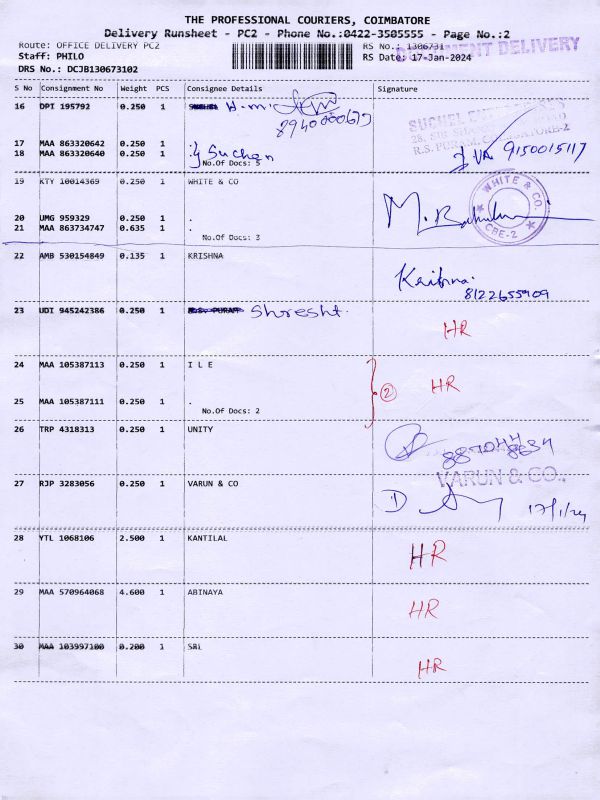 THE PROFESSIONAL COURIERS, COIMBATORE
Delivery Runsheet - PC2 - Phone No.:0422-3505555 - Page No.:2
Route: OFFICE DELIVERY PC2
RS No.: 1306731
DOCUMENT DELIVERY
Staff: PHILO
RS Date: 17-Jan-2024
DRS No.: DCJB130673102
S No Consignment No Weight PCS Consignee Details Signature
16 DPT 195792 0.250 1
8940000679
17 MAA 863320642 0.250 1
18 MAA 863320640 0.250 1 Suchen
No.Of Docs: 5
9150015117
19 KTY 10014369 0.250 1 WHITE & CO
WHITE & CO.
CBE-2
20 UMG 959329 0.250 1 .
21 MAA 863734747 0.635 1 .
No.Of Docs: 3
22 AMB 530154849 0.135 1 KRISHNA
Krishna
8122655909
23 UDI 945242386 0.250 1 Shresht.
HR
24 MAA 105387113 0.250 1 I L E
2 HR
25 MAA 105387111 0.250 1 .
No.Of Docs: 2
26 TRP 4318313 0.250 1 UNITY
27 RJP 3283056 0.250 1 VARUN & CO
VARUN & CO.,
17/1/24
28 YTL 1068106 2.500 1 KANTILAL
HR
29 MAA 570964068 4.600 1 ABINAYA
HR
30 MAA 103997100 0.200 1 SRI
HR